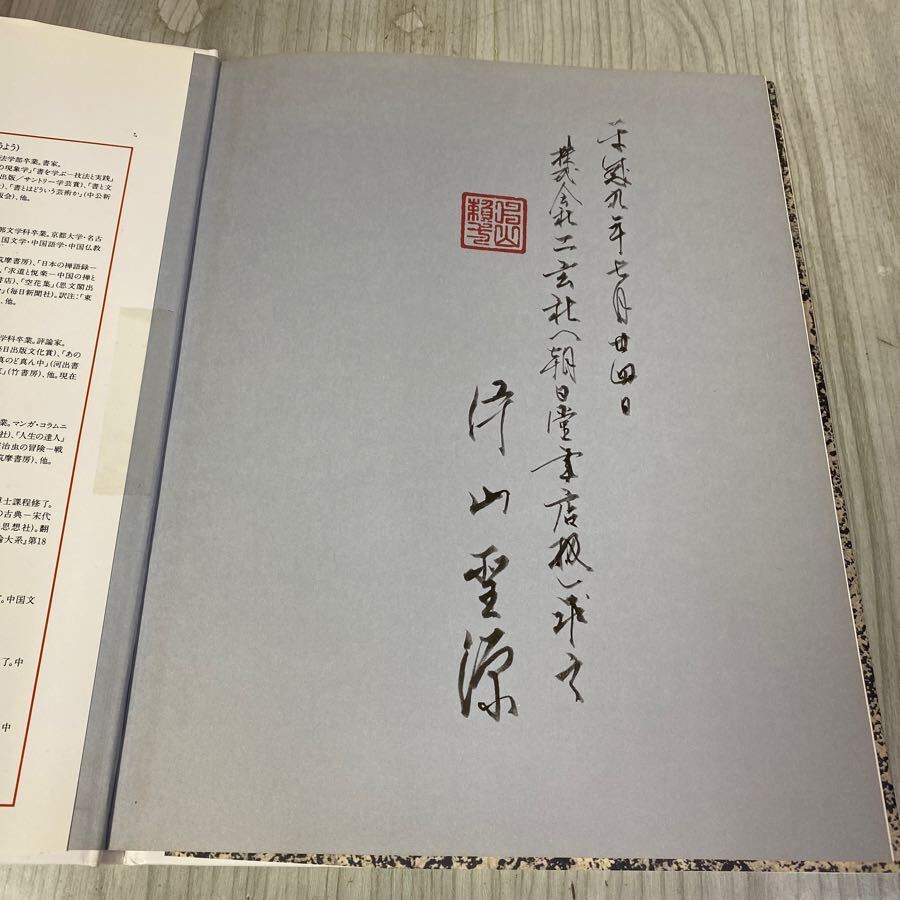 法学部卒業。書家。
の現象学」「書を学ぶ―技法と実践」
出版/サントリー学芸賞)、「書と文
)、「書とはどういう芸術か」(中公新
版会)、他。
郭文学科卒業。京都大学・名古
国文学・中国語学・中国仏教
筑摩書房)、「日本の禅語録―
、「求道と悦楽―中国の禅と
書店)、「空花集」(思文閣出
」(毎日新聞社)。訳注：「東
、他。
学科卒業。評論家。
毎日出版文化賞)、「あの
真のど真ん中」(河出書
」(竹書房)、他。現在
業。マンガ・コラムニ
社)、「人生の達人」
治虫の冒険―戦
筑摩書房)、他。
博士課程修了。
の古典―宋代
思想社)。翻
論大系」第18
。中国文
了。中
中
平成九年七月廿四日
株式会社二玄社へ朝日堂書店扱
山聖源